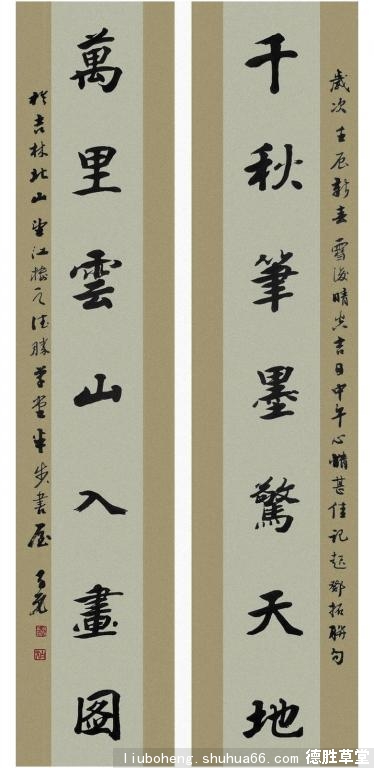 歲次壬辰新春雪後晴光吉日中午心情甚佳記起鄧拓聯句
千秋筆墨驚天地
萬里雲山入畫圖
於吉林北山望江樓之德勝草堂半步書屋
liuboheng.shuhua66.com 德胜草堂